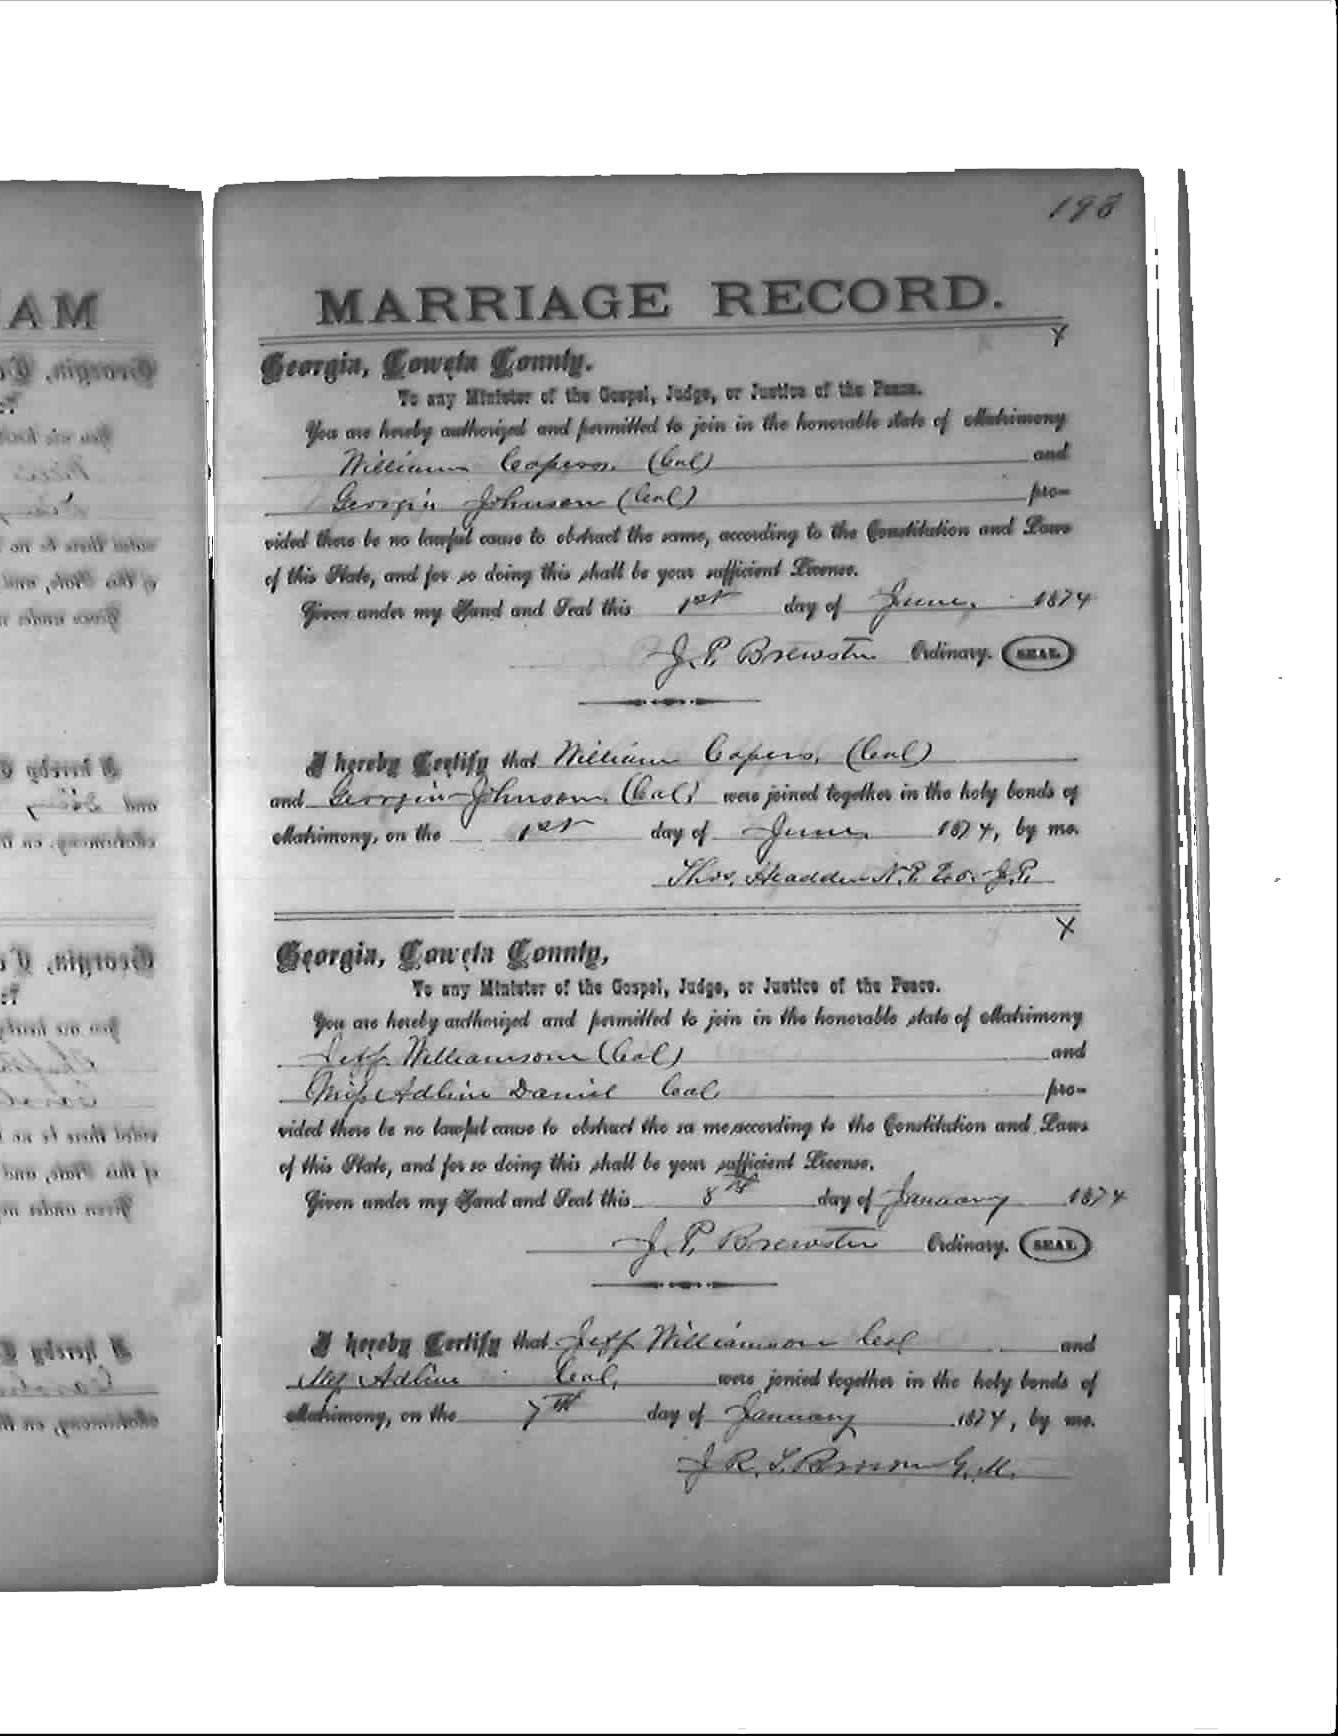 198
MARRIAGE RECORD.
X
Georgia, Coweta County.
To any Minister of the Gospel, Judge, or Justice of the Peace.
You are hereby authorized and permitted to join in the honorable state of Matrimony
William Capers. (Col) and
Georgia Johnson (Col) pro-
vided there be no lawful cause to obstruct the same, according to the Constitution and Laws
of this State, and for so doing this shall be your sufficient License.
Given under my Hand and Seal this 1st day of June, 1874
J. P. Brewster Ordinary. SEAL
I hereby Certify that William Capers, (Col)
and Georgia Johnson, (Col) were joined together in the holy bonds of
Matrimony, on the 1st day of June 1874, by me.
Thos. Headden N.P. Exo. J.P.
X
Georgia, Coweta County,
To any Minister of the Gospel, Judge, or Justice of the Peace.
You are hereby authorized and permitted to join in the honorable state of Matrimony
Jeff. Williamson (Col) and
Miss Adline Daniel Col, pro-
vided there be no lawful cause to obstruct the sa me, according to the Constitution and Laws
of this State, and for so doing this shall be your sufficient License.
Given under my Hand and Seal this 8th day of January 1874
J. P. Brewster Ordinary. SEAL
I hereby Certify that Jeff Williamson Col and
Adline Col, were jonied together in the holy bonds of
Matrimony, on the 7th day of January 1874, by me.
J. R. T. Brown G. M.